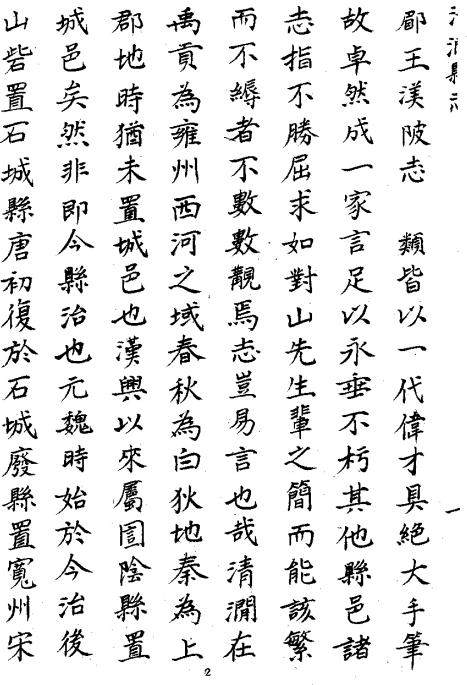 清澗縣志
一
郿王渼陂志　類皆以一代偉才具絕大手筆
故卓然成一家言足以永垂不朽其他縣邑諸
志指不勝屈求如對山先生輩之簡而能該繁
而不縟者不數數覯焉志豈易言也哉清澗在
禹貢為雍州西河之域春秋為白狄地秦為上
郡地時猶未置城邑也漢興以來屬圁陰縣置
城邑矣然非即今縣治也元魏時始於今治後
山砦置石城縣唐初復於石城廢縣置寬州宋
2